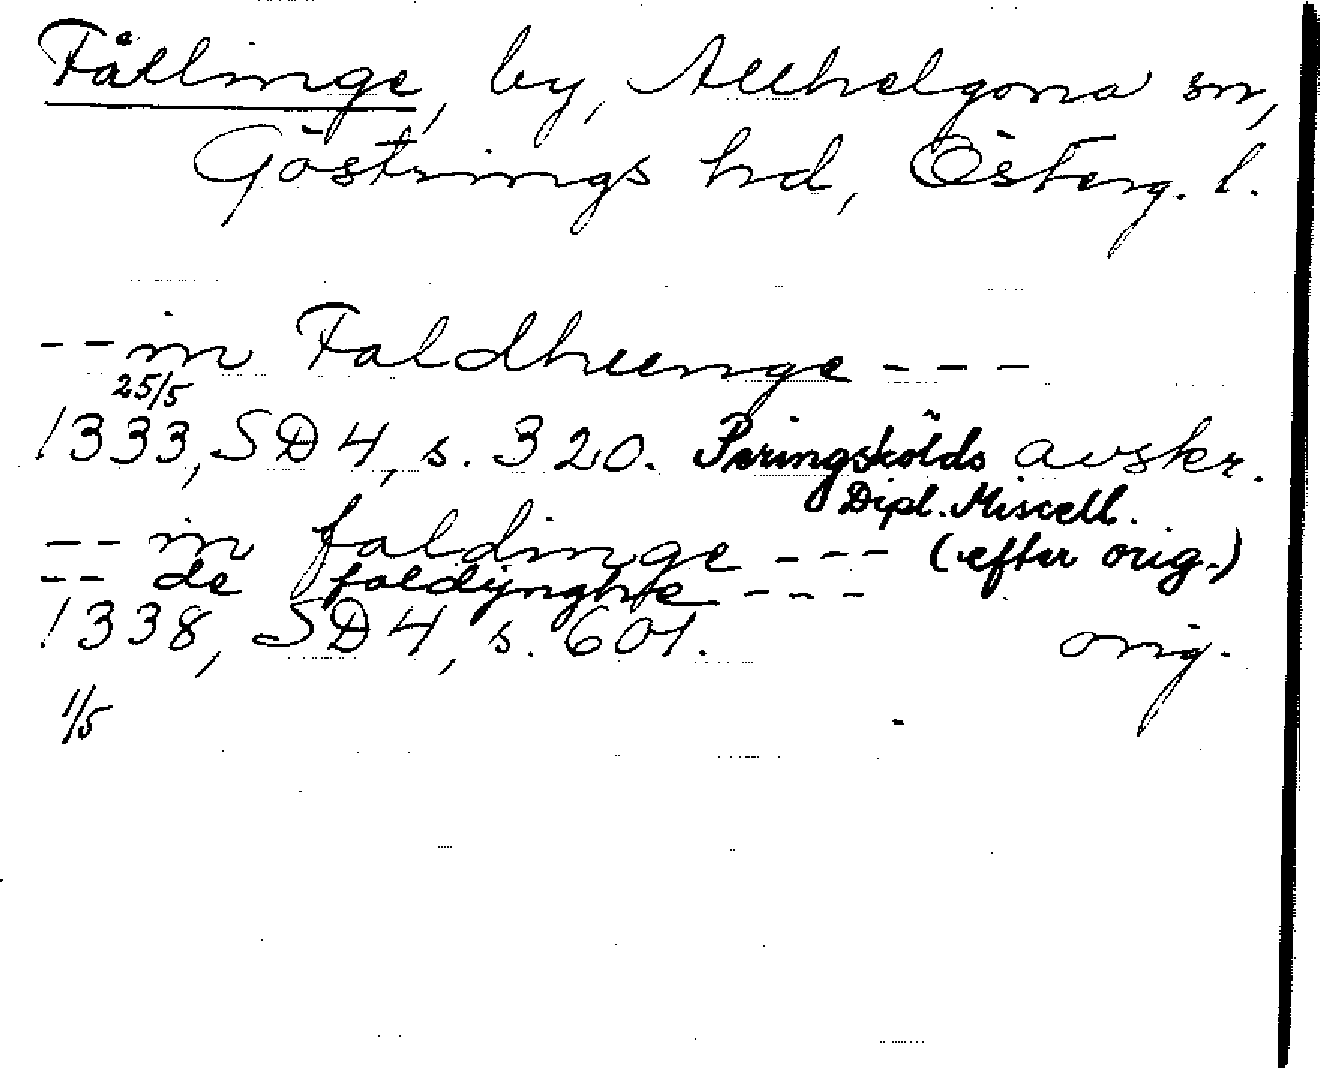 Fållinge, by, Allhelgona sn,
Göstrings hd, Österg. l.
-- in Faldhunge ---
25/5
1333, SD 4, s. 320. Peringskölds avskr.
Dipl. Miscell.
-- in faldinge --- (efter orig.)
-- de faldijnghe ---
1338, SD 4, s. 601. orig.
1/5